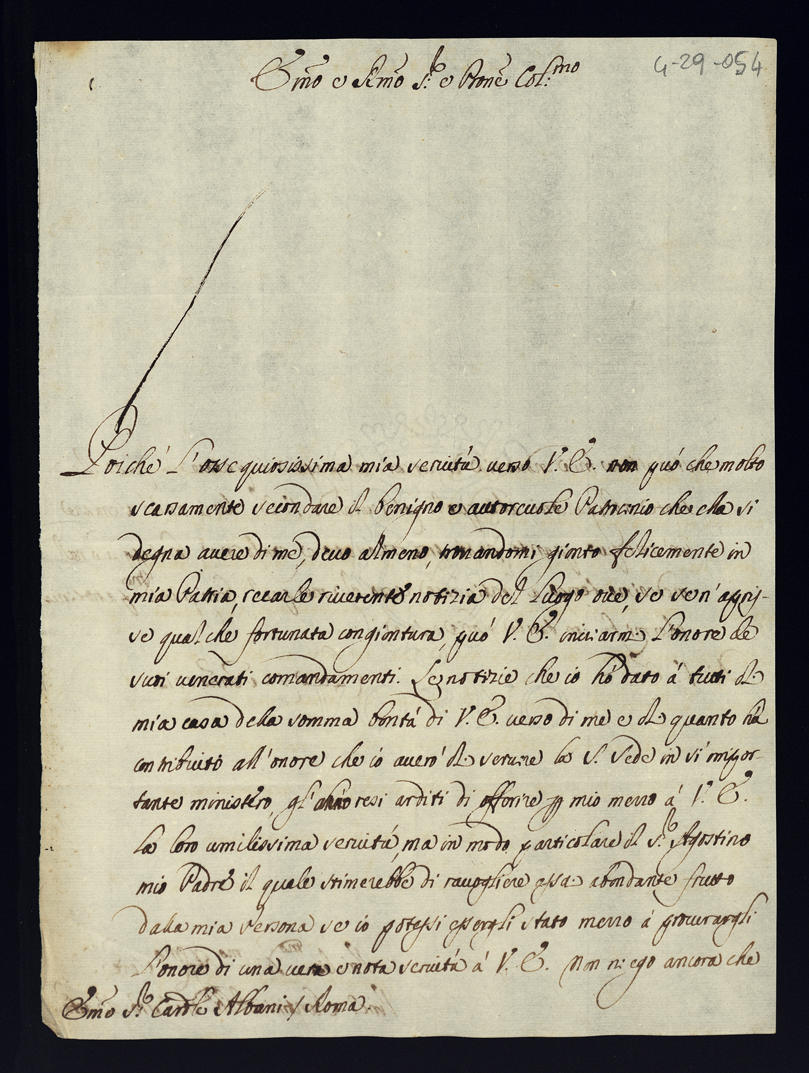 4-29-054
Emo e Rmo Sr. e Prone Col:mo
Poiche' l'ossequiosissima mia servitú verso V. E. non puó che molto
scarsamente secondare il benigno e autorevole Patrocinio che ella si
degna avere di me, devo almeno, trovandomi gionto felicemente in
mia Patria, recarle riverente notizia del luogo ove, se se n'apris-
se qualche fortunata congiontura, puó V. E. inviarmi l'onore de
suoi venerati comandamenti. Le notizie che io hó dato á tutti di
mia casa della somma bontá di V. E. verso di me e di quanto há
contribuito all'onore che io averó di servire la S. Sede in sí impor-
tante ministero, gl'hanno resi arditi di offerire p mio mezzo á V. E.
la loro umilissima servitú, ma in modo particolare il Sr. Agostino
mio Padre il quale stimerebbe di raccogliere assai abondante frutto
dalla mia Persona se io potessi essergli stato mezzo á procurargli
l'onore di una vera e nota servitú á V. E. Non niego ancora che
Emo Sr. Cardle Albani / Roma